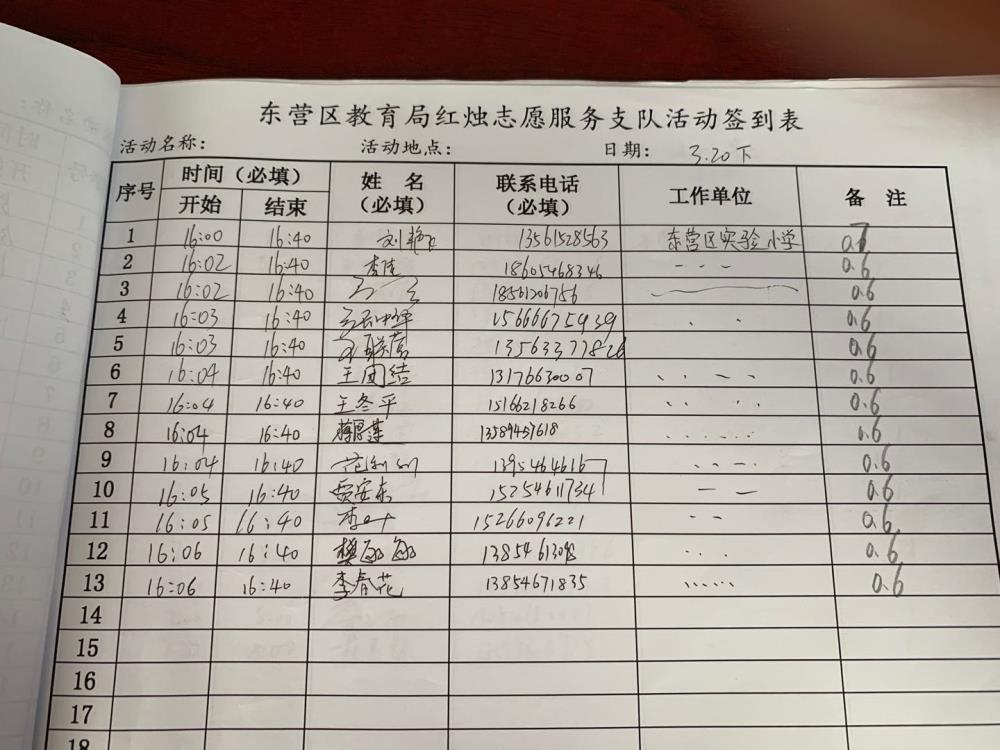 东营区教育局红烛志愿服务支队活动签到表
活动名称: 活动地点: 日期: 3.20下
序号 时间（必填） 姓 名（必填） 联系电话（必填） 工作单位 备 注
开始 结束
1 16:00 16:40 刘艳 13561528563 东营区实验小学 0.7
2 16:02 16:40 李佳 18605468346 0.6
3 16:02 16:40 18561206756 0.6
4 16:03 16:40 15666675939 0.6
5 16:03 16:40 13563377826 0.6
6 16:04 16:40 王团结 13176630007 0.6
7 16:04 16:40 王冬平 15166218266 0.6
8 16:04 16:40 13589457618 0.6
9 16:04 16:40 13954646167 0.6
10 16:05 16:40 贾安东 15254611734 0.6
11 16:05 16:40 李叶 15266096221 0.6
12 16:06 16:40 0.6
13 16:06 16:40 李春花 13854671835 0.6
14
15
16
17
18